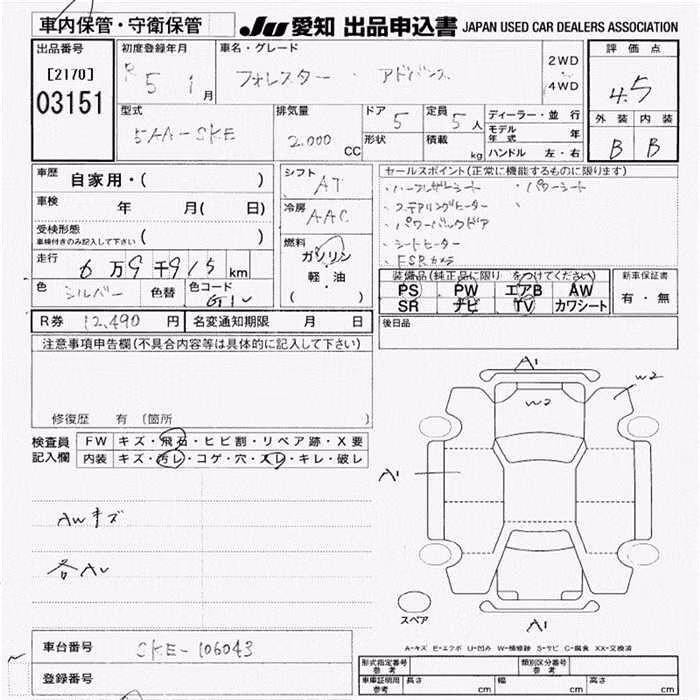 車内保管・守衛保管
JU 愛知 出品申込書 JAPAN USED CAR DEALERS ASSOCIATION
出品番号 初度登録年月 車名・グレード 評価点
[2170] R 5 1 月 フォレスター・アドバンス 2WD 4WD 4.5
03151
型式 排気量 ドア 定員 ディーラー・並行 外装 内装
5AA-SKE 2.000 CC 5 5人 モデル年式 年 B B
形状 積載 kg ハンドル 左・右
車歴 自家用・( ) シフト AT セールスポイント(正常に機能するものに限ります)
・ハーフレザーシート ・パワーシート
車検 年 月( 日) 冷房 AAC ・ステアリングヒーター ・
・パワーバックドア
受検形態 車検付きのみ記入して下さい ( ) 燃料 ・シートヒーター
ガソリン ・FSRカメラ
走行 6万9千915km 軽・油
( )
装備品(純正品に限り をつけてください) 新車保証書
色 シルバー 色替 色コード G1U
PS PW エアB AW 有・無
SR ナビ TV カワシート
R券 12,490 円 名変通知期限 月 日 後日品
注意事項申告欄(不具合内容等は具体的に記入して下さい)
修復歴 有 (箇所 )
検査員 FW キズ・飛石・ヒビ割・リペア跡・X要
記入欄 内装 キズ・汚レ・コゲ・穴・スレ・キレ・破レ
A1
W2
W2
A1
AWキズ
各AU
スペア
A1
A-キズ E-エクボ U-凹み W-補修跡 S-サビ C-腐食 XX-交換済
車台番号 SKE-106043
登録番号
形式指定番号 参考 類別区分番号 参考
車庫証明用 参考 長さ cm 幅 cm 高さ cm